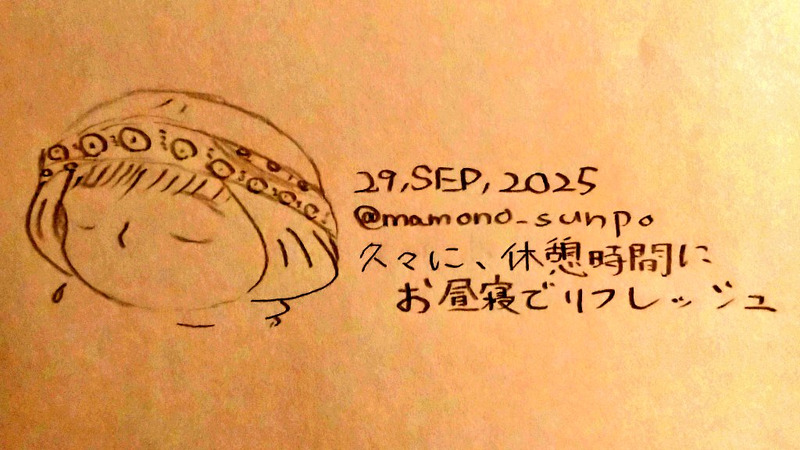 29,SEP,2025
@mamono_sunpo
久々に、休憩時間に
お昼寝でリフレッシュ